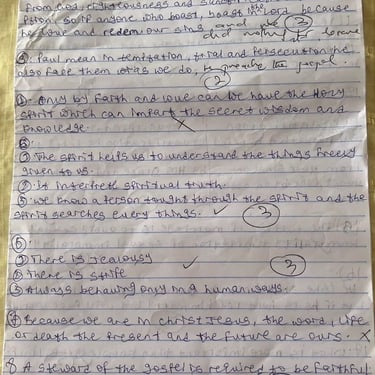 from God, righteousness and
ption, so if anyone who boast, boast in the Lord because
he love and redem our sins and he ③
did nothing for
④ Paul mean in temtation, trial and Persecution he
also face them all as we do, to preach the gospel.
②
①. Only by Faith and love can we have the Holy
Spirit which can impart the secret wisdom and
knowledge. X
⑥
① The spirit helps us to understand the things freely
given to us.
② It interfret spiritual truth.
③ we know a person tought through the spirit and the
spirit searches every things. ✓ ③
⑥.
① There is Jealousy
② There is strife ✓ ③
③ Always behaving only in a human ways.
⑦ Because we are in christ Jesus, the word, life
or death the Present and the future are ours. X
8 A steward of the gospel is required to be faithful